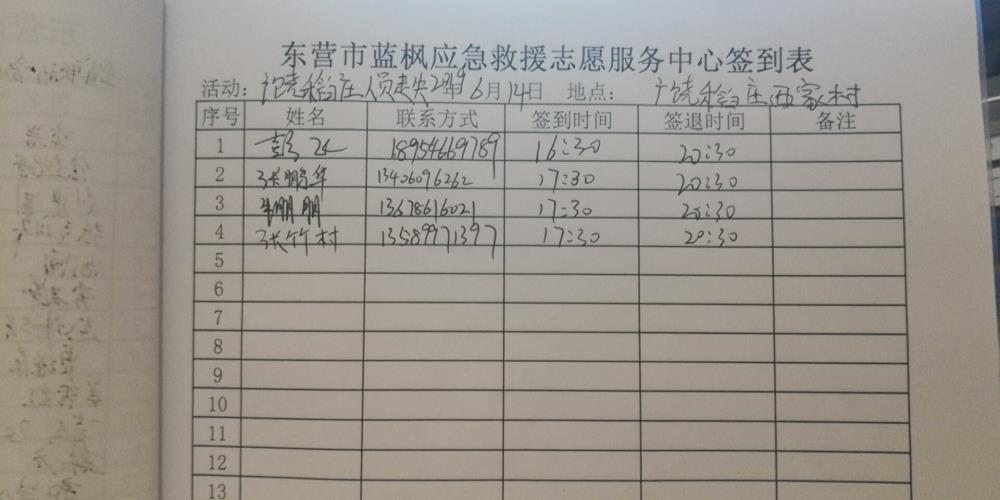 东营市蓝枫应急救援志愿服务中心签到表
活动：广饶稻庄人员走失2019 6月14日 地点：广饶稻庄西家村
序号 姓名 联系方式 签到时间 签退时间 备注
1 彭 18954669789 16:30 20:30
2 张鹏华 13406096262 17:30 20:30
3 朋朋 13678616021 17:30 20:30
4 张竹村 13589971397 17:30 20:30
5
6
7
8
9
10
11
12
13